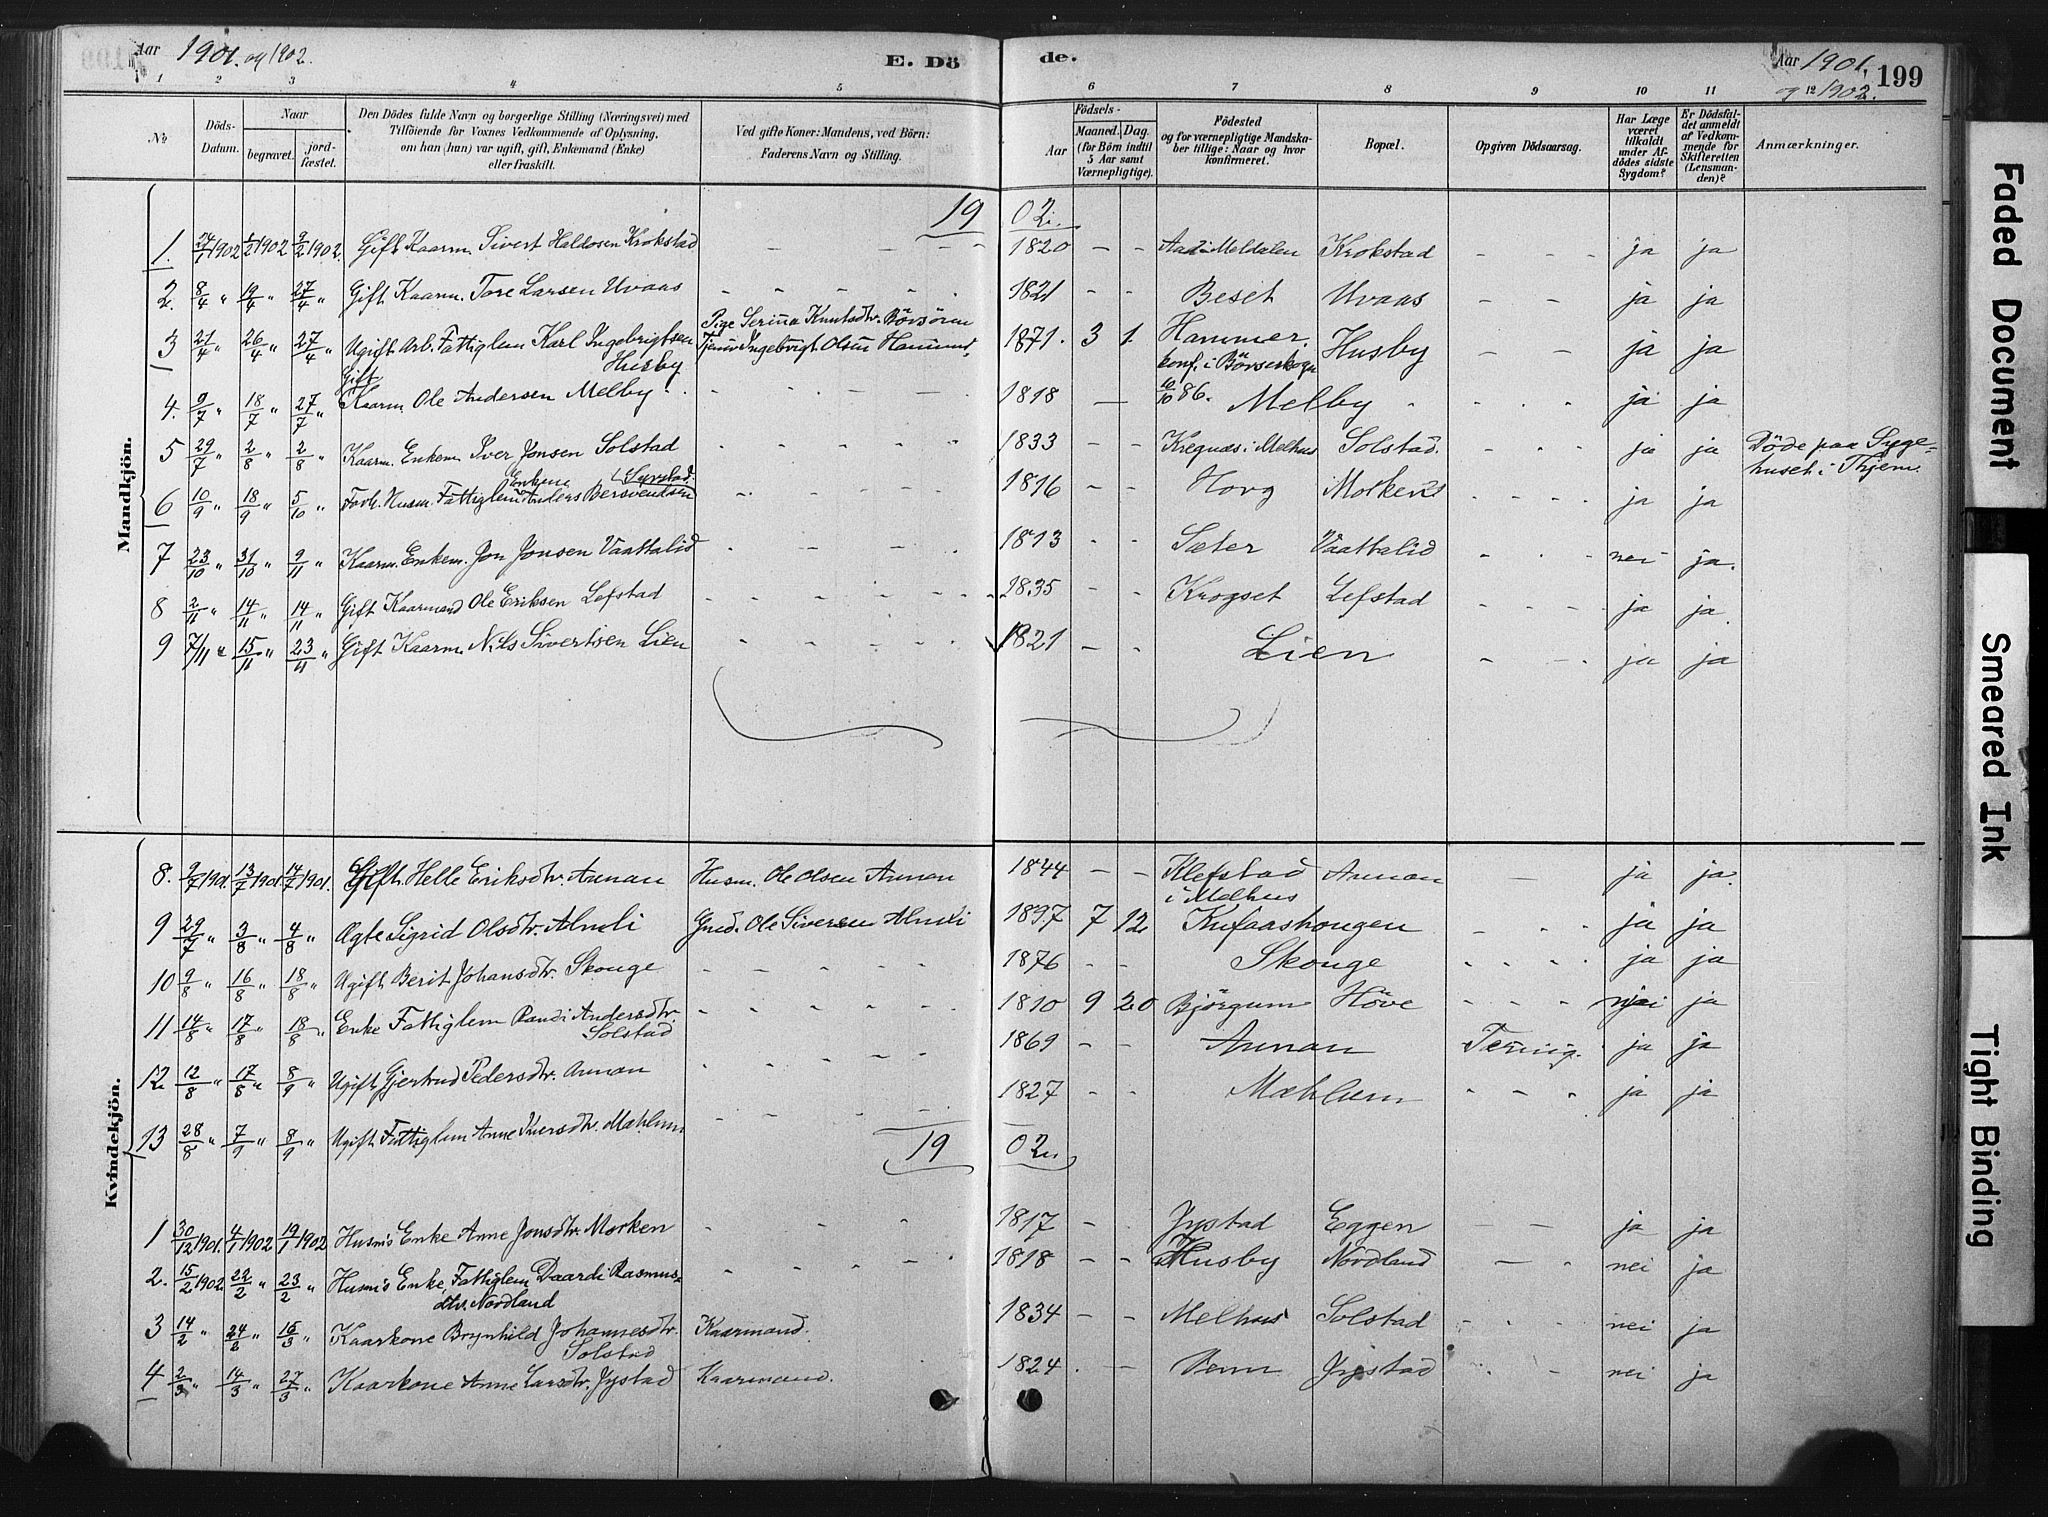 Aar 1901. og 1902.
E. Dö
de.
Aar 1901.
199
og 1902.
1 2 3 4 5 6 7 8 9 10 11 12
No.
Döds-Datum.
Naar
begravet.
jord-fæstet.
Den Dödes fulde Navn og borgerlige Stilling (Næringsvei) med
Tilföiende for Voxnes Vedkommende af Oplysning,
om han (hun) var ugift, gift, Enkemand (Enke)
eller fraskilt.
Ved gifte Koner: Mandens, ved Börn:
Faderens Navn og Stilling.
Födsels-
Aar
Maaned. Dag.
(for Börn indtil
5 Aar samt
Værnepligtige).
Födested
og for værnepligtige Mandska-
ber tillige: Naar og hvor
konfirmeret.
Bopæl.
Opgiven Dödsaarsag.
Har Læge
været
tilkaldt
under Af-
dödes sidste
Sygdom?
Er Dödsfal-
det anmeldt
af Vedkom-
mende for
Skifteretten
(Lensman-
den)?
Anmærkninger.
Mandkjön.
19 02.
1. 24/1 1902 1/2 1902 9/2 1902. Gift Kaarm. Sivert Haldosen Krokstad - - - 1820 - - Aa i Meldalen Krokstad - - - ja ja
2. 8/4 " 19/4 " 27/4 " Gift Kaarm. Tore Larsen Uvaas - - - - - 1821 - - Beset Uvaas - - ja ja
3 21/4 " 26/4 " 27/4 " Ugift Arb. Fattiglem Karl Ingebrigtsen Husby Pige Serina Knutsdtr. Börsören Tjener Ingebrigt Olsen 1871. 3 1. Hammer. konf. i Börseskogn 10/10 86. Husby - - ja ja
4. 9/7 " 18/7 " 27/7 " Gift Kaarm Ole Andersen Melby - - - - 1818 - Melby - - - ja ja
5 29/7 " 2/8 " 2/8 " Kaarm. Enkem Iver Jonsen Solstad - - - - 1833 - - Kregnæs i Melhus Solstad. - - - ja ja Döde paa Syge-
huset i Thjem
6 10/9 " 18/9 " 5/10 " Forh. Husm. Fattiglem Enkem Anders Bersvendsen - - - 1816 - - Horg - - - ja ja
7 23/10 " 31/10 " 9/11 " Kaarm. Enkem. Jon Jonsen Vaattalid - - - - 1813 - - Sæter Vaattalid - - - nei ja.
8 2/11 " 14/11 " 14/11 " Gift Kaarmand Ole Eriksen Lefstad - - - - - 1835 - - Krogset Lefstad - - - ja ja.
9 7/11 " 15/11 " 23/11 " Gift Kaarm. Nils Sivertsen Lien - - - - 1821 - - Lien - - ja ja
Kvindekjön.
8. 9/7 1901. 13/7 1901. 14/7 1901. Gift Helle Eriksdtr. Annan Husm. Ole Olsen Annan 1844 - - Klefstad i Melhus Annan - ja ja.
9 29/7 " 3/8 " 4/8 " Ægte Sigrid Olsdtr. Almli Gmd. Ole Siversen Almli 1897 7 12 Kufaashougen - - - ja ja
10 9/8 " 16/8 " 18/8 " Ugift Berit Johansdtr. Skouge - - - - 1876 - - Skouge - - - - ja ja
11 14/8 " 17/8 " 18/8 " Enke Fattiglem Randi Andersdtr. Solstad - - - - 1810 9 20 Björgum Höve - - - nei ja
12 12/8 " 17/8 " 8/9 " Ugift Gjertrud Pedersdtr. Annan - - - - 1869 - - Annan Tæring. ja ja
13 28/8 " 7/9 " 8/9 " Ugift Fattiglem Anne Iversdtr. Mæhlum - - - - 1827 - - Mæhlum - - - ja ja
19 02.
1 30/12 1901. 4/1 1902 19/1 1902 Husm's Enke Anne Jonsdtr. Morken - - - 1817 - - Jystad Eggen - - ja ja
2. 15/2 1902 22/2 " 23/2 " Husm's Enke, Fattiglem Daardi Rasmus-
dtr. Nordland - - - - 1818 - - Husby Nordland - - nei ja
3 14/2 " 24/2 " 16/3 " Kaarkone Brynhild Johannesdtr. Solstad Kaarmand. 1834 - - Melhus Solstad - - - nei ja
4 2/3 " 14/3 " 27/3 " Kaarkone Anne Larsdtr. Jystad Kaarmand. 1824 - - Venn Jystad - - nei ja
Faded Document
Smeared Ink
Tight Binding